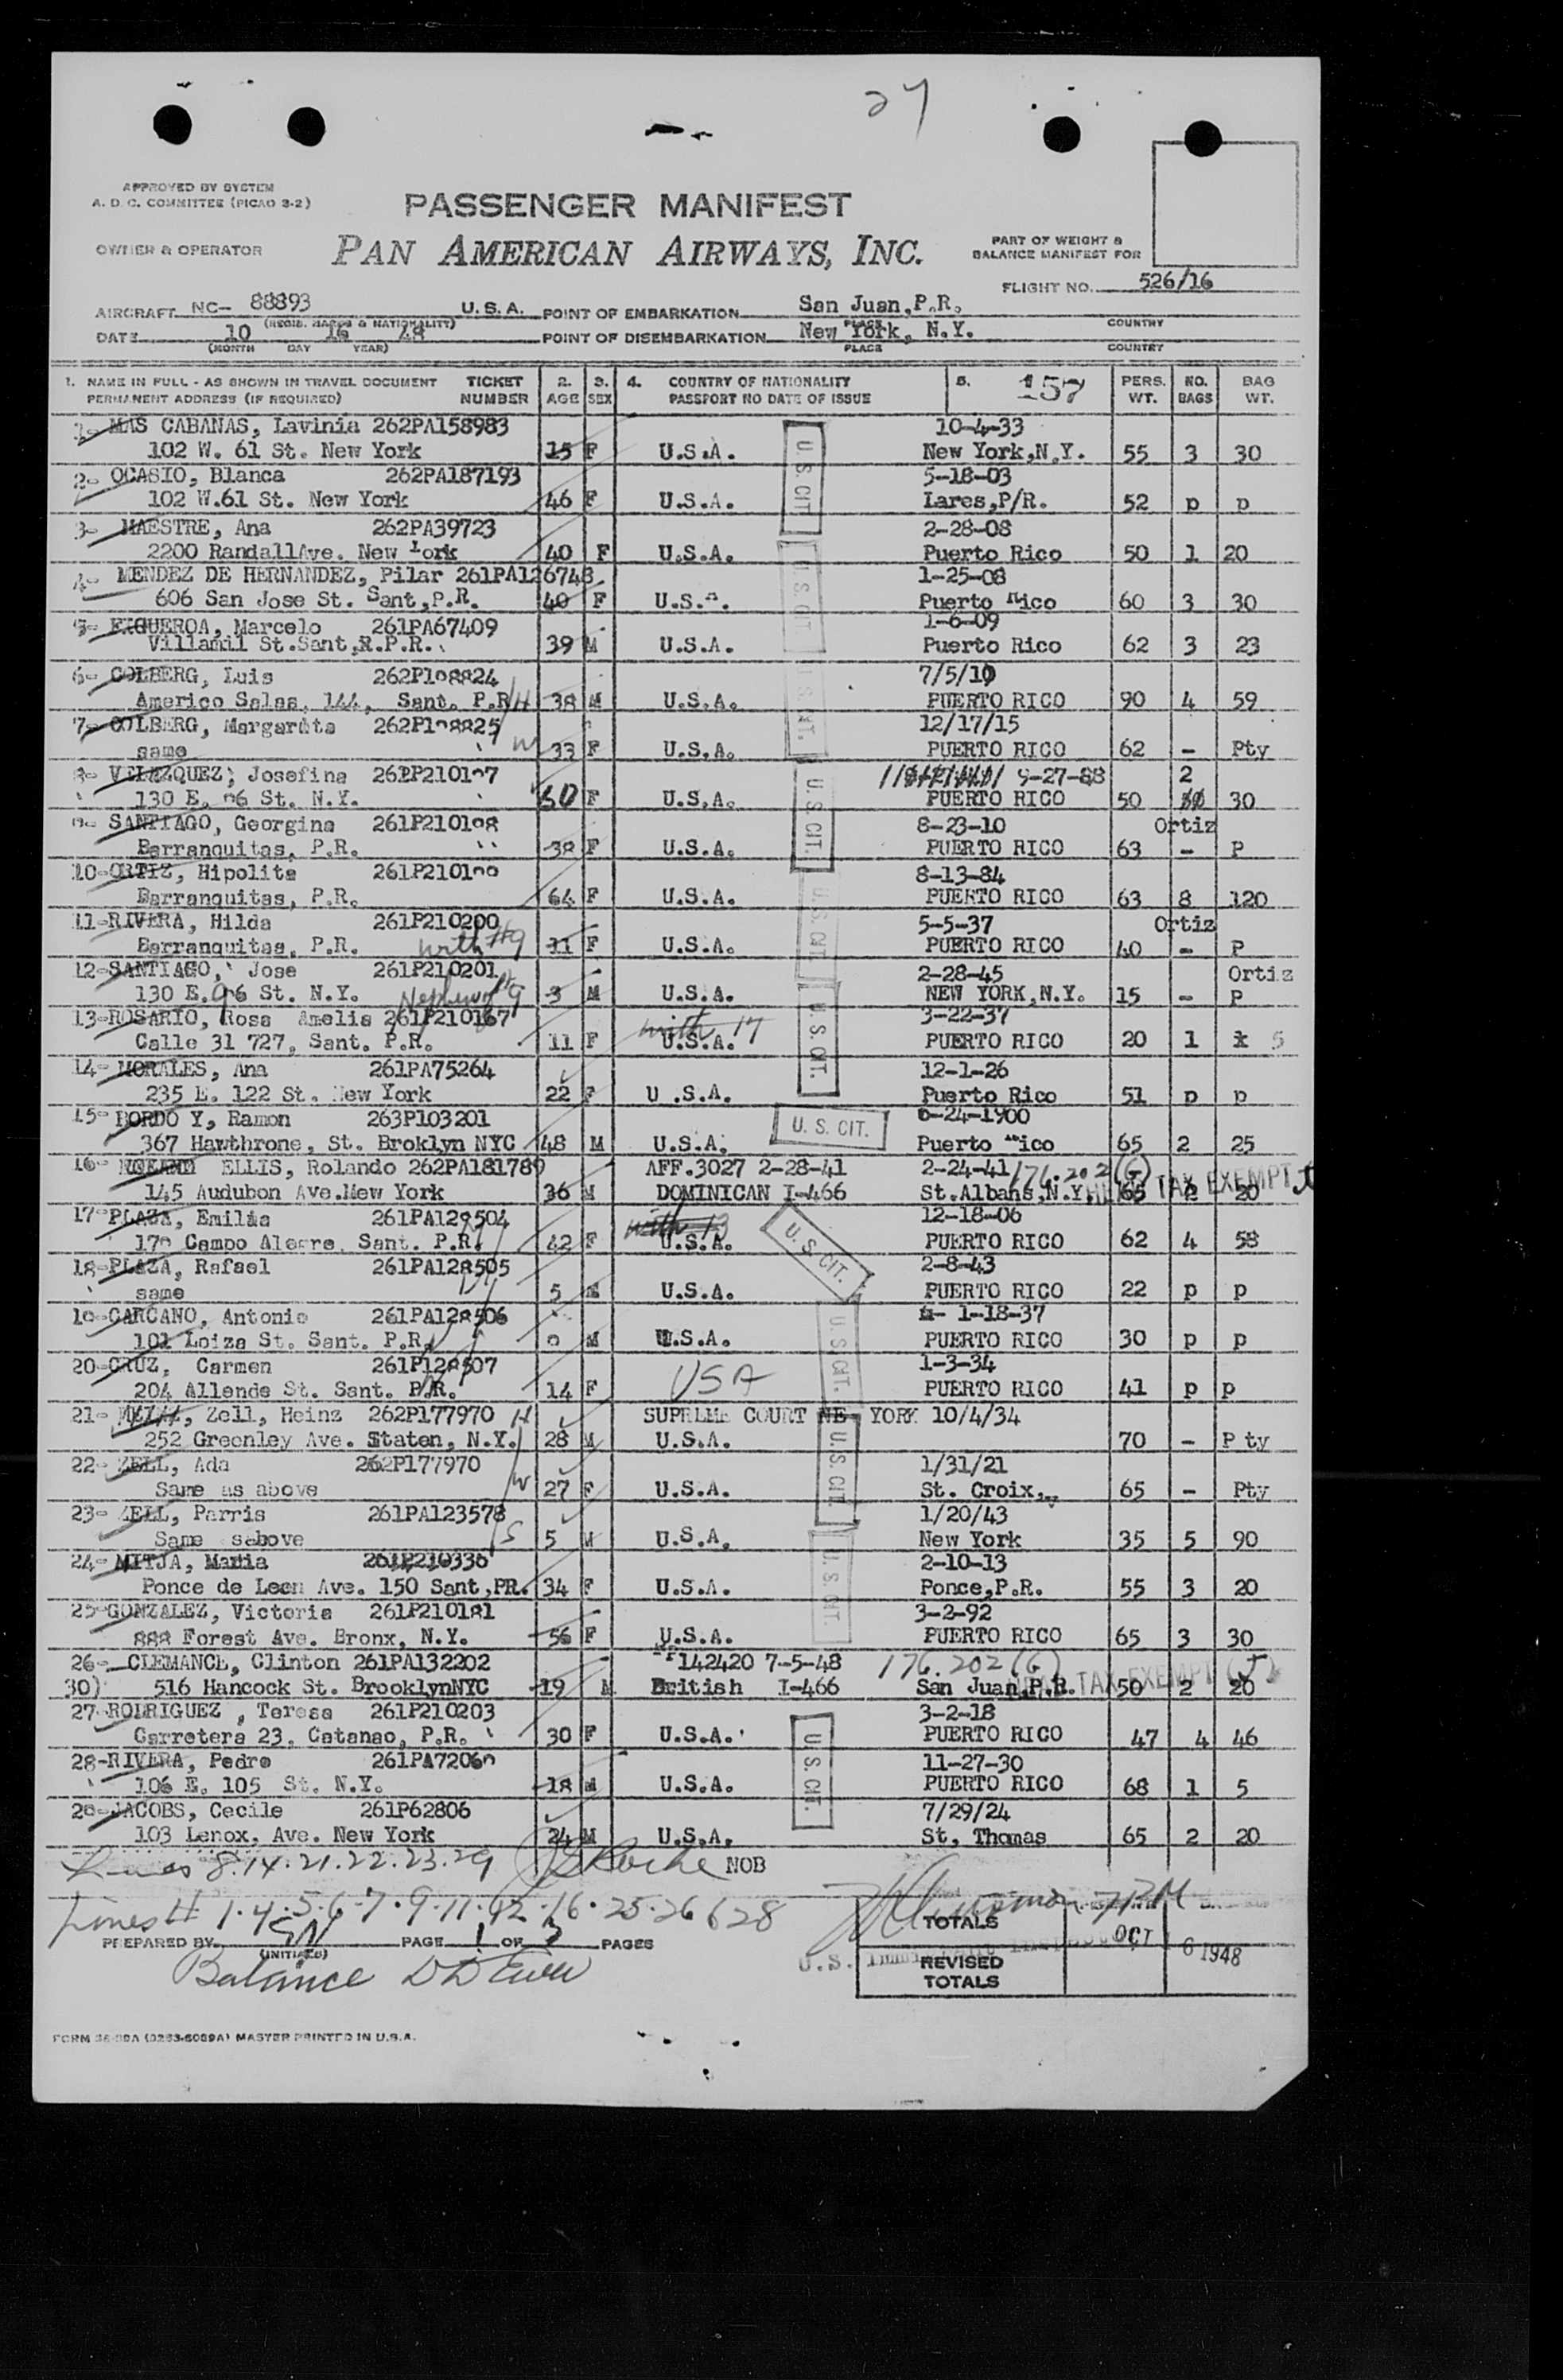 27
APPROVED BY SYSTEM
A. D. C. COMMITTEE (PICAO 3-2)
PASSENGER MANIFEST
OWNER & OPERATOR
PAN AMERICAN AIRWAYS, INC.
PART OF WEIGHT &
BALANCE MANIFEST FOR
FLIGHT NO. 526/16
AIRCRAFT NC- 88893 U.S.A. POINT OF EMBARKATION San Juan,P.R.
(REGIS. MARKS & NATIONALITY) PLACE COUNTRY
DATE 10 16 48 POINT OF DISEMBARKATION New York, N.Y.
(MONTH DAY YEAR) PLACE COUNTRY
1. NAME IN FULL - AS SHOWN IN TRAVEL DOCUMENT TICKET 2. 3. 4. COUNTRY OF NATIONALITY 5. 157 PERS. NO. BAG
PERMANENT ADDRESS (IF REQUIRED) NUMBER AGE SEX PASSPORT NO DATE OF ISSUE WT. BAGS WT.
1- MAS CABANAS, Lavinia 262PA158983 10-4-33
102 W. 61 St. New York 15 F U.S.A. New York,N.Y. 55 3 30
2- OCASIO, Blanca 262PA187193 5-18-03
102 W.61 St. New York 46 F U.S.A. Lares,P/R. 52 p p
3- MAESTRE, Ana 262PA39723 2-28-08
2200 RandallAve. New York 40 F U.S.A. Puerto Rico 50 1 20
4- MENDEZ DE HERNANDEZ, Pilar 261PA126748 1-25-08
606 San Jose St. Sant,P.R. 40 F U.S.A. Puerto Rico 60 3 30
5- FIGUEROA, Marcelo 261PA67409 1-6-09
Villamil St.Sant,R.P.R. 39 M U.S.A. Puerto Rico 62 3 23
6- COLBERG, Luis 262P108824 7/5/10
Americo Salas, 144, Sant. P.R. H 38 M U.S.A. PUERTO RICO 90 4 59
7- COLBERG, Margarita 262P108825 12/17/15
same W 33 F U.S.A. PUERTO RICO 62 - Pty
8- VELAZQUEZ, Josefina 261P210197 9-27-88 2
130 E. 96 St. N.Y. 60 F U.S.A. PUERTO RICO 50 30
9- SANTIAGO, Georgina 261P210198 8-23-10 Ortiz
Barranquitas, P.R. 38 F U.S.A. PUERTO RICO 63 - P
10-ORTIZ, Hipolita 261P210199 8-13-84
Barranquitas, P.R. 64 F U.S.A. PUERTO RICO 63 8 120
11-RIVERA, Hilda 261P210200 5-5-37 Ortiz
Barranquitas, P.R. with #9 11 F U.S.A. PUERTO RICO 40 - P
12-SANTIAGO, Jose 261P210201 2-28-45 Ortiz
130 E.96 St. N.Y. Nephew of #9 3 M U.S.A. NEW YORK,N.Y. 15 - P
13-ROSARIO, Rosa Amelia 261P210167 with 17 3-22-37
Calle 31 727, Sant. P.R. 11 F U.S.A. PUERTO RICO 20 1 5
14- MORALES, Ana 261PA75264 12-1-26
235 E. 122 St. New York 22 F U .S.A. Puerto Rico 51 p p
15- BORDO Y, Ramon 263P103201 6-24-1900
367 Hawthrone, St. Broklyn NYC 48 M U.S.A. U. S. CIT. Puerto Rico 65 2 25
16- ELLIS, Rolando 262PA181789 AFF.3027 2-28-41 2-24-41 176.202(G)
145 Audubon Ave.New York 36 M DOMINICAN I-466 St.Albans,N.Y. HEAD TAX EXEMPT 65 2 20
17-PLAZA, Emilia 261PA128504 with 13 12-18-06
179 Campo Alegre, Sant. P.R. 42 F U.S.A. U. S. CIT. PUERTO RICO 62 4 58
18-PLAZA, Rafael 261PA128505 2-8-43
same 5 M U.S.A. PUERTO RICO 22 p p
19-CARCANO, Antonio 261PA128506 1-18-37
101 Loiza St. Sant. P.R. 9 M U.S.A. PUERTO RICO 30 p p
20-CRUZ, Carmen 261P128507 1-3-34
204 Allende St. Sant. P.R. 14 F USA PUERTO RICO 41 p p
21- Zell, Heinz 262P177970 H SUPREME COURT NE YORK 10/4/34
252 Greenley Ave. Staten, N.Y. 28 M U.S.A. 70 - P ty
22- ZELL, Ada 262P177970 1/31/21
Same as above W 27 F U.S.A. St. Croix, 65 - Pty
23- ZELL, Parris 261PA123578 1/20/43
Same sabove S 5 M U.S.A. New York 35 5 90
24- MITJA, Maria 261P210336 2-10-13
Ponce de Leon Ave. 150 Sant,PR. 34 F U.S.A. Ponce,P.R. 55 3 20
25-GONZALEZ, Victoria 261P210181 3-2-92
888 Forest Ave. Bronx, N.Y. 56 F U.S.A. PUERTO RICO 65 3 30
26- CLEMANCE, Clinton 261PA132202 142420 7-5-48 176.202(G)
30) 516 Hancock St. BrooklynNYC 19 M British I-466 San Juan,P.R. HEAD TAX EXEMPT 50 2 20
27-RODRIGUEZ , Teresa 261P210203 3-2-18
Carretera 23, Catanao, P.R. 30 F U.S.A. PUERTO RICO 47 4 46
28-RIVERA, Pedro 261PA72069 11-27-30
106 E. 105 St. N.Y. 18 M U.S.A. PUERTO RICO 68 1 5
29-JACOBS, Cecile 261P62806 7/29/24
103 Lenox. Ave. New York 24 M U.S.A. St, Thomas 65 2 20
U. S. CIT.
U. S. CIT.
U. S. CIT.
U. S. CIT.
U. S. CIT.
U. S. CIT.
U. S. CIT.
U. S. CIT.
U. S. CIT.
U. S. CIT.
Lines 8.14.21.22.23.29 NOB
Lines # 1.4.5.6.7.9.11.12.16.25.26 & 28
TOTALS
PREPARED BY (INITIALS) PAGE 1 OF 3 PAGES
OCT 16 1948
U.S.
REVISED
TOTALS
Balance
FORM 36-99A (0283-6099A) MASTER PRINTED IN U.S.A.